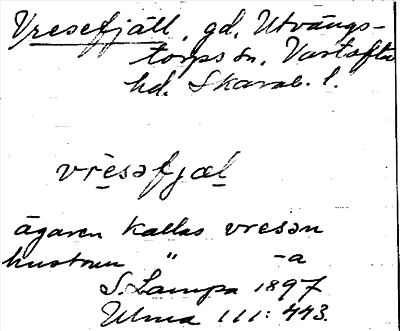 Vresefjäll, gd. Utvängs-
torps sn, Vartofta
hd. Skarab. l.
vre̱səfjæḻ
ägaren kallas vresən
hustrun " -a
S. Lampa 1897
Ulma 111:443.